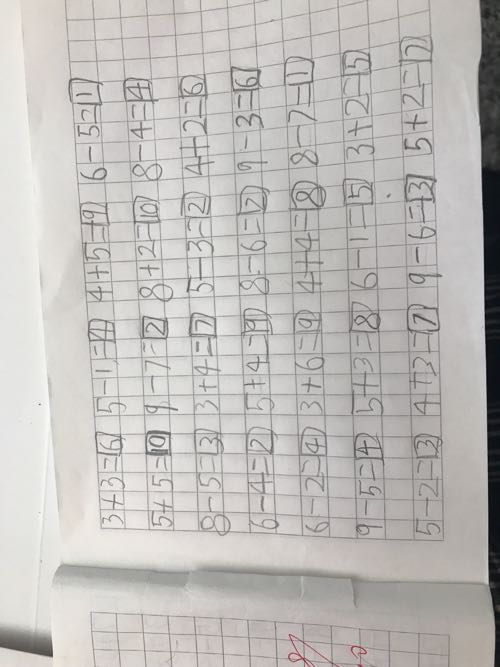 3+3=6 5-1=4 4+5=9 6-5=1
5+5=10 9-7=2 8+2=10 8-4=4
8-5=3 3+4=7 5-3=2 4+2=6
6-4=2 5+4=9 8-6=2 9-3=6
6-2=4 3+6=9 4+4=8 8-7=1
9-5=4 5+3=8 6-1=5 3+2=5
5-2=3 4+3=7 9-6=3 5+2=7